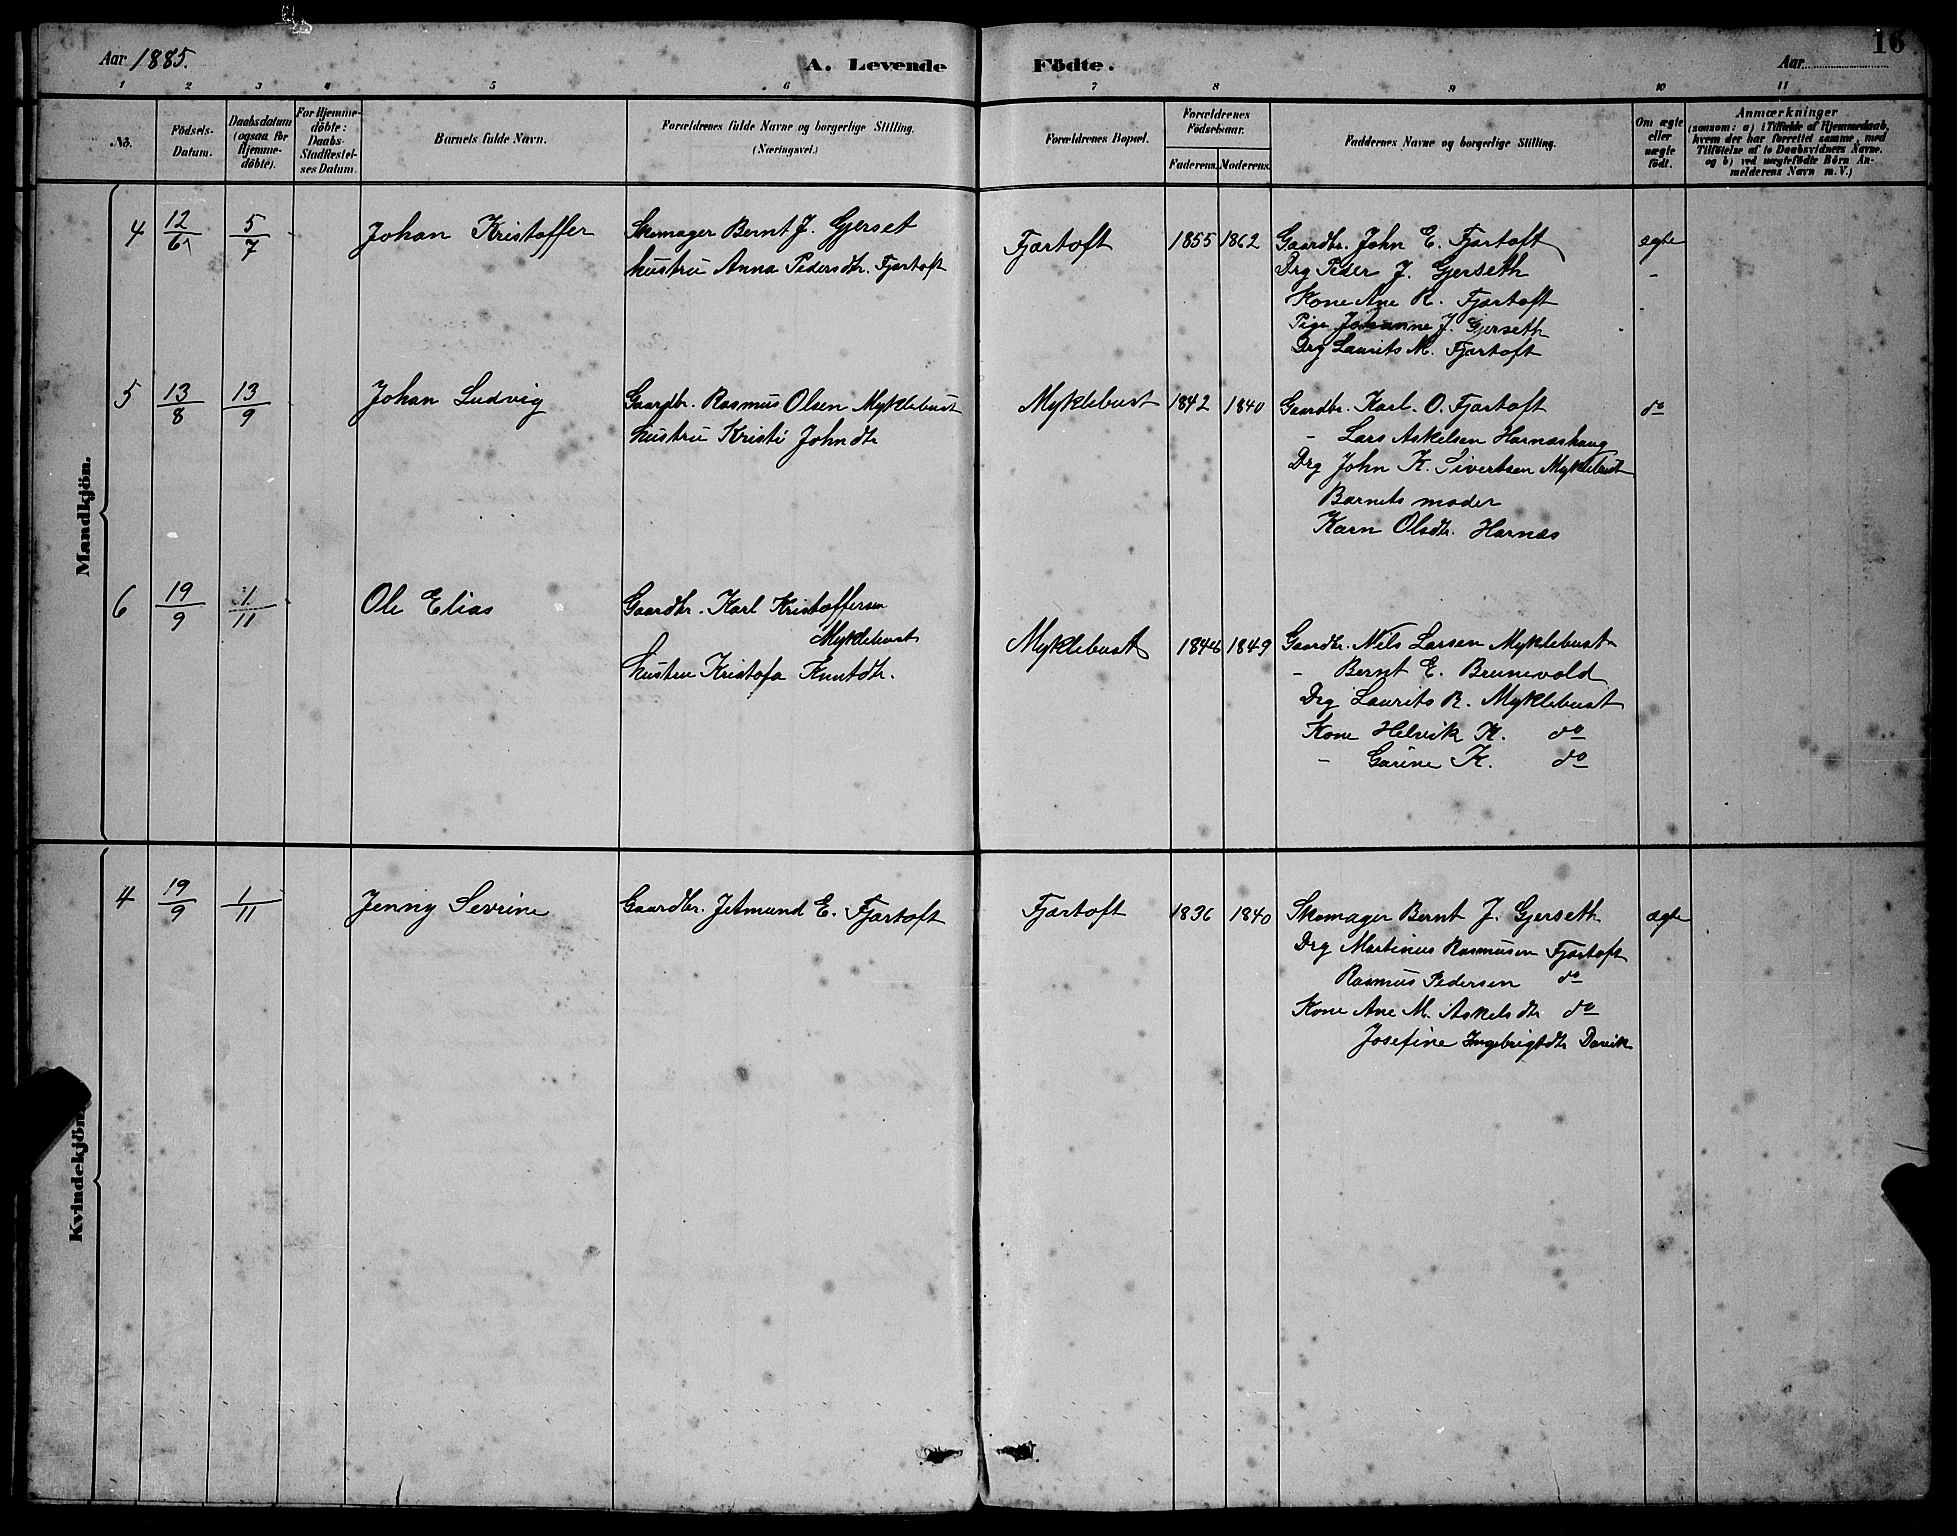 16
Aar 1885.
A. Levende Födte.
Aar
1 2 3 4 5 6 7 8 9 10 11
No.
Födsels-Datum.
Daabsdatum (ogsaa for Hjemme-döbte).
For Hjemme-döbte: Daabs-Stadfæstel-ses Datum.
Barnets fulde Navn.
Forældrenes fulde Navne og borgerlige Stilling.
(Næringsvei.)
Forældrenes Bopæl.
Forældrenes Födselsaar.
Faderens. Moderens.
Faddernes Navne og borgerlige Stilling.
Om ægte eller uægte födt.
Anmærkninger
(saasom: a) i Tilfælde af Hjemmedaab, hvem der har forrettet samme, med Tilföielse af to Daabsvidners Navne. og b) ved uægtefödte Börn An-melderens Navn m. V.)
Mandkjön.
4 12/6 5/7 Johan Kristoffer Skomager Bernt J. Gjerset Fjærtoft 1855 1862 Gaardbr. John E. Fjærtoft ægte
hustru Anna Pedersdtr. Fjærtoft Drg Peder J. Gjerseth -
Kone Ane R. Fjærtoft
Pige Johanne J. Gjerseth
Drg Laurits M. Fjærtoft
5 13/8 13/9 Johan Ludvig Gaardbr. Rasmus Olsen Myklebust Myklebust 1842 1840 Gaardbr. Karl O. Fjærtoft do
hustru Kristi Johndtr - Lars Askelsen Harnæshaug
Drg John K. Sivertsen Myklebust
Barnets moder
Karn Olsdtr. Harnæs
6 19/9 1/11 Ole Elias Gaardbr. Karl Kristoffersen
Myklebust Myklebust 1849 Gaardbr. Nils Larsen Myklebust
hustru Kristofa Knutdtr. - Bernt E. Brunevold
Drg Laurits R. Myklebust
Kone Helvik K. do
- Garine K. do
Kvindekjön.
4 19/9 1/11 Jenny Sevrine Gaardbr. Jetmund E. Fjærtoft Fjærtoft 1836 1840 Skomager Bernt J. Gjerseth ægte
Drg Martinus Rasmusen Fjærtoft
Rasmus Pedersen do
Kone Ane M. Askelsdtr do
Josefine Ingebrigtdtr